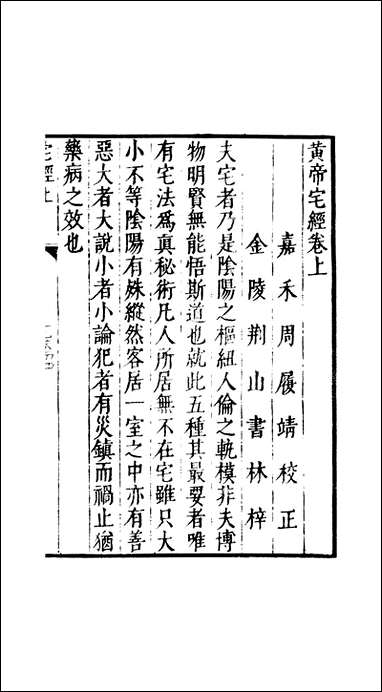 黄帝宅經卷上
嘉禾周履靖校正
金陵荆山書林梓
夫宅者乃是陰陽之樞紐人倫之軌模非夫博
物明賢無能悟斯道也就此五種其最要者唯
有宅法爲真秘術凡人所居無不在宅雖只大
小不等陰陽有殊縱然客居一室之中亦有善
惡大者大說小者小論犯者有災鎮而禍止猶
藥病之效也
宅經上